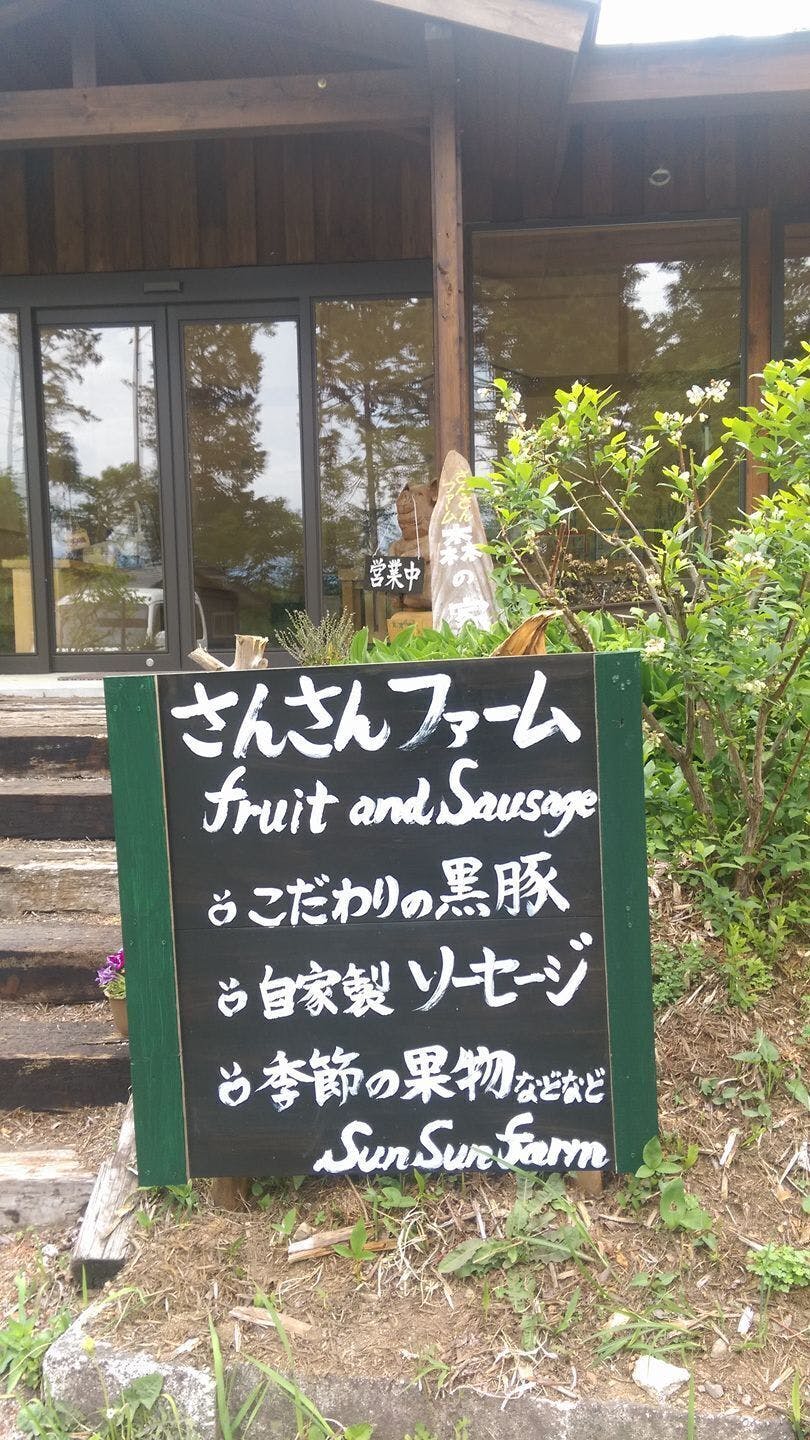 さんさん
ファーム
森の家
営業中
さんさんファーム
fruit and Sausage
こだわりの黒豚
自家製 ソーセージ
季節の果物などなど
SunSun farm